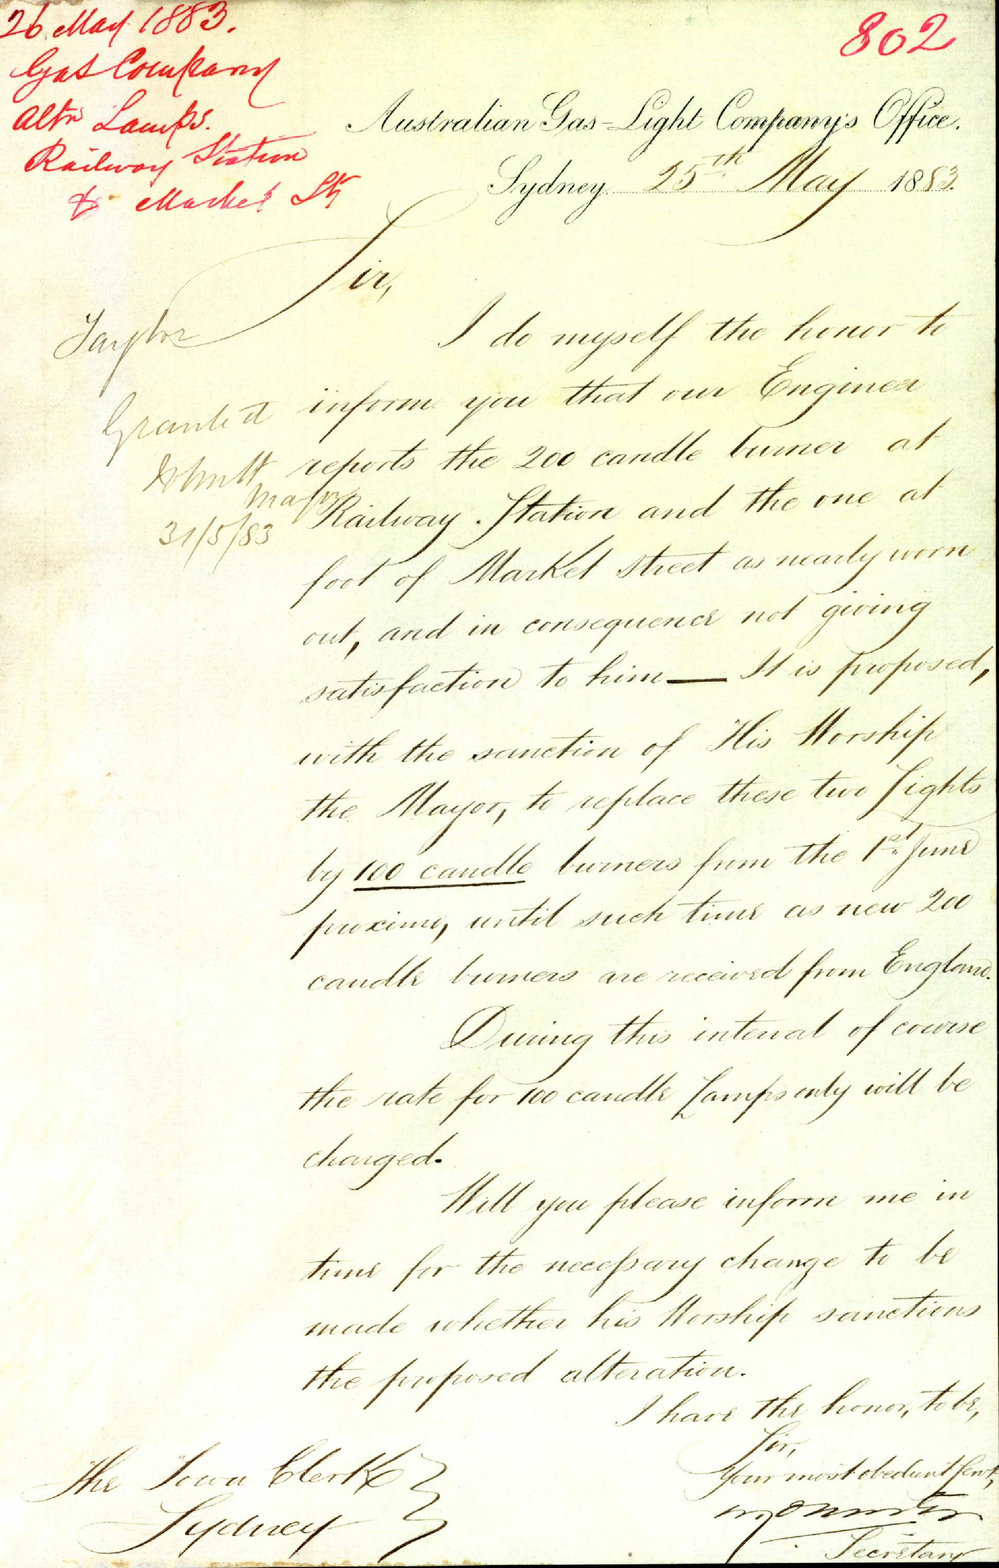 26 May 1883.
Gas Company
altn Lamps.
Railway Station
& Market St
802
Australian Gas-Light Company's Office.
Sydney 25th May 1883.
Sir,
Taylor
Granted
Mayor
31/5/83
I do myself the honor to
inform you that our Engineer
reports the 200 candle burner at
Railway Station and the one at
foot of Market street as nearly worn
out, and in consequence not giving
satisfaction to him — It is proposed,
with the sanction of His Worship
the Mayor, to replace these two Lights
by 100 candle burners from the 1st June
proximo, until such time as new 200
candle burners are received from England.
During this interval of course
the rate for 100 candle Lamps only will be
charged.
Will you please inform me in
time for the necessary change to be
made whether his Worship sanctions
the proposed alteration.
I have the honor, to be,
Sir,
Your most obedient Servt,
Secretary
The Town Clerk
Sydney